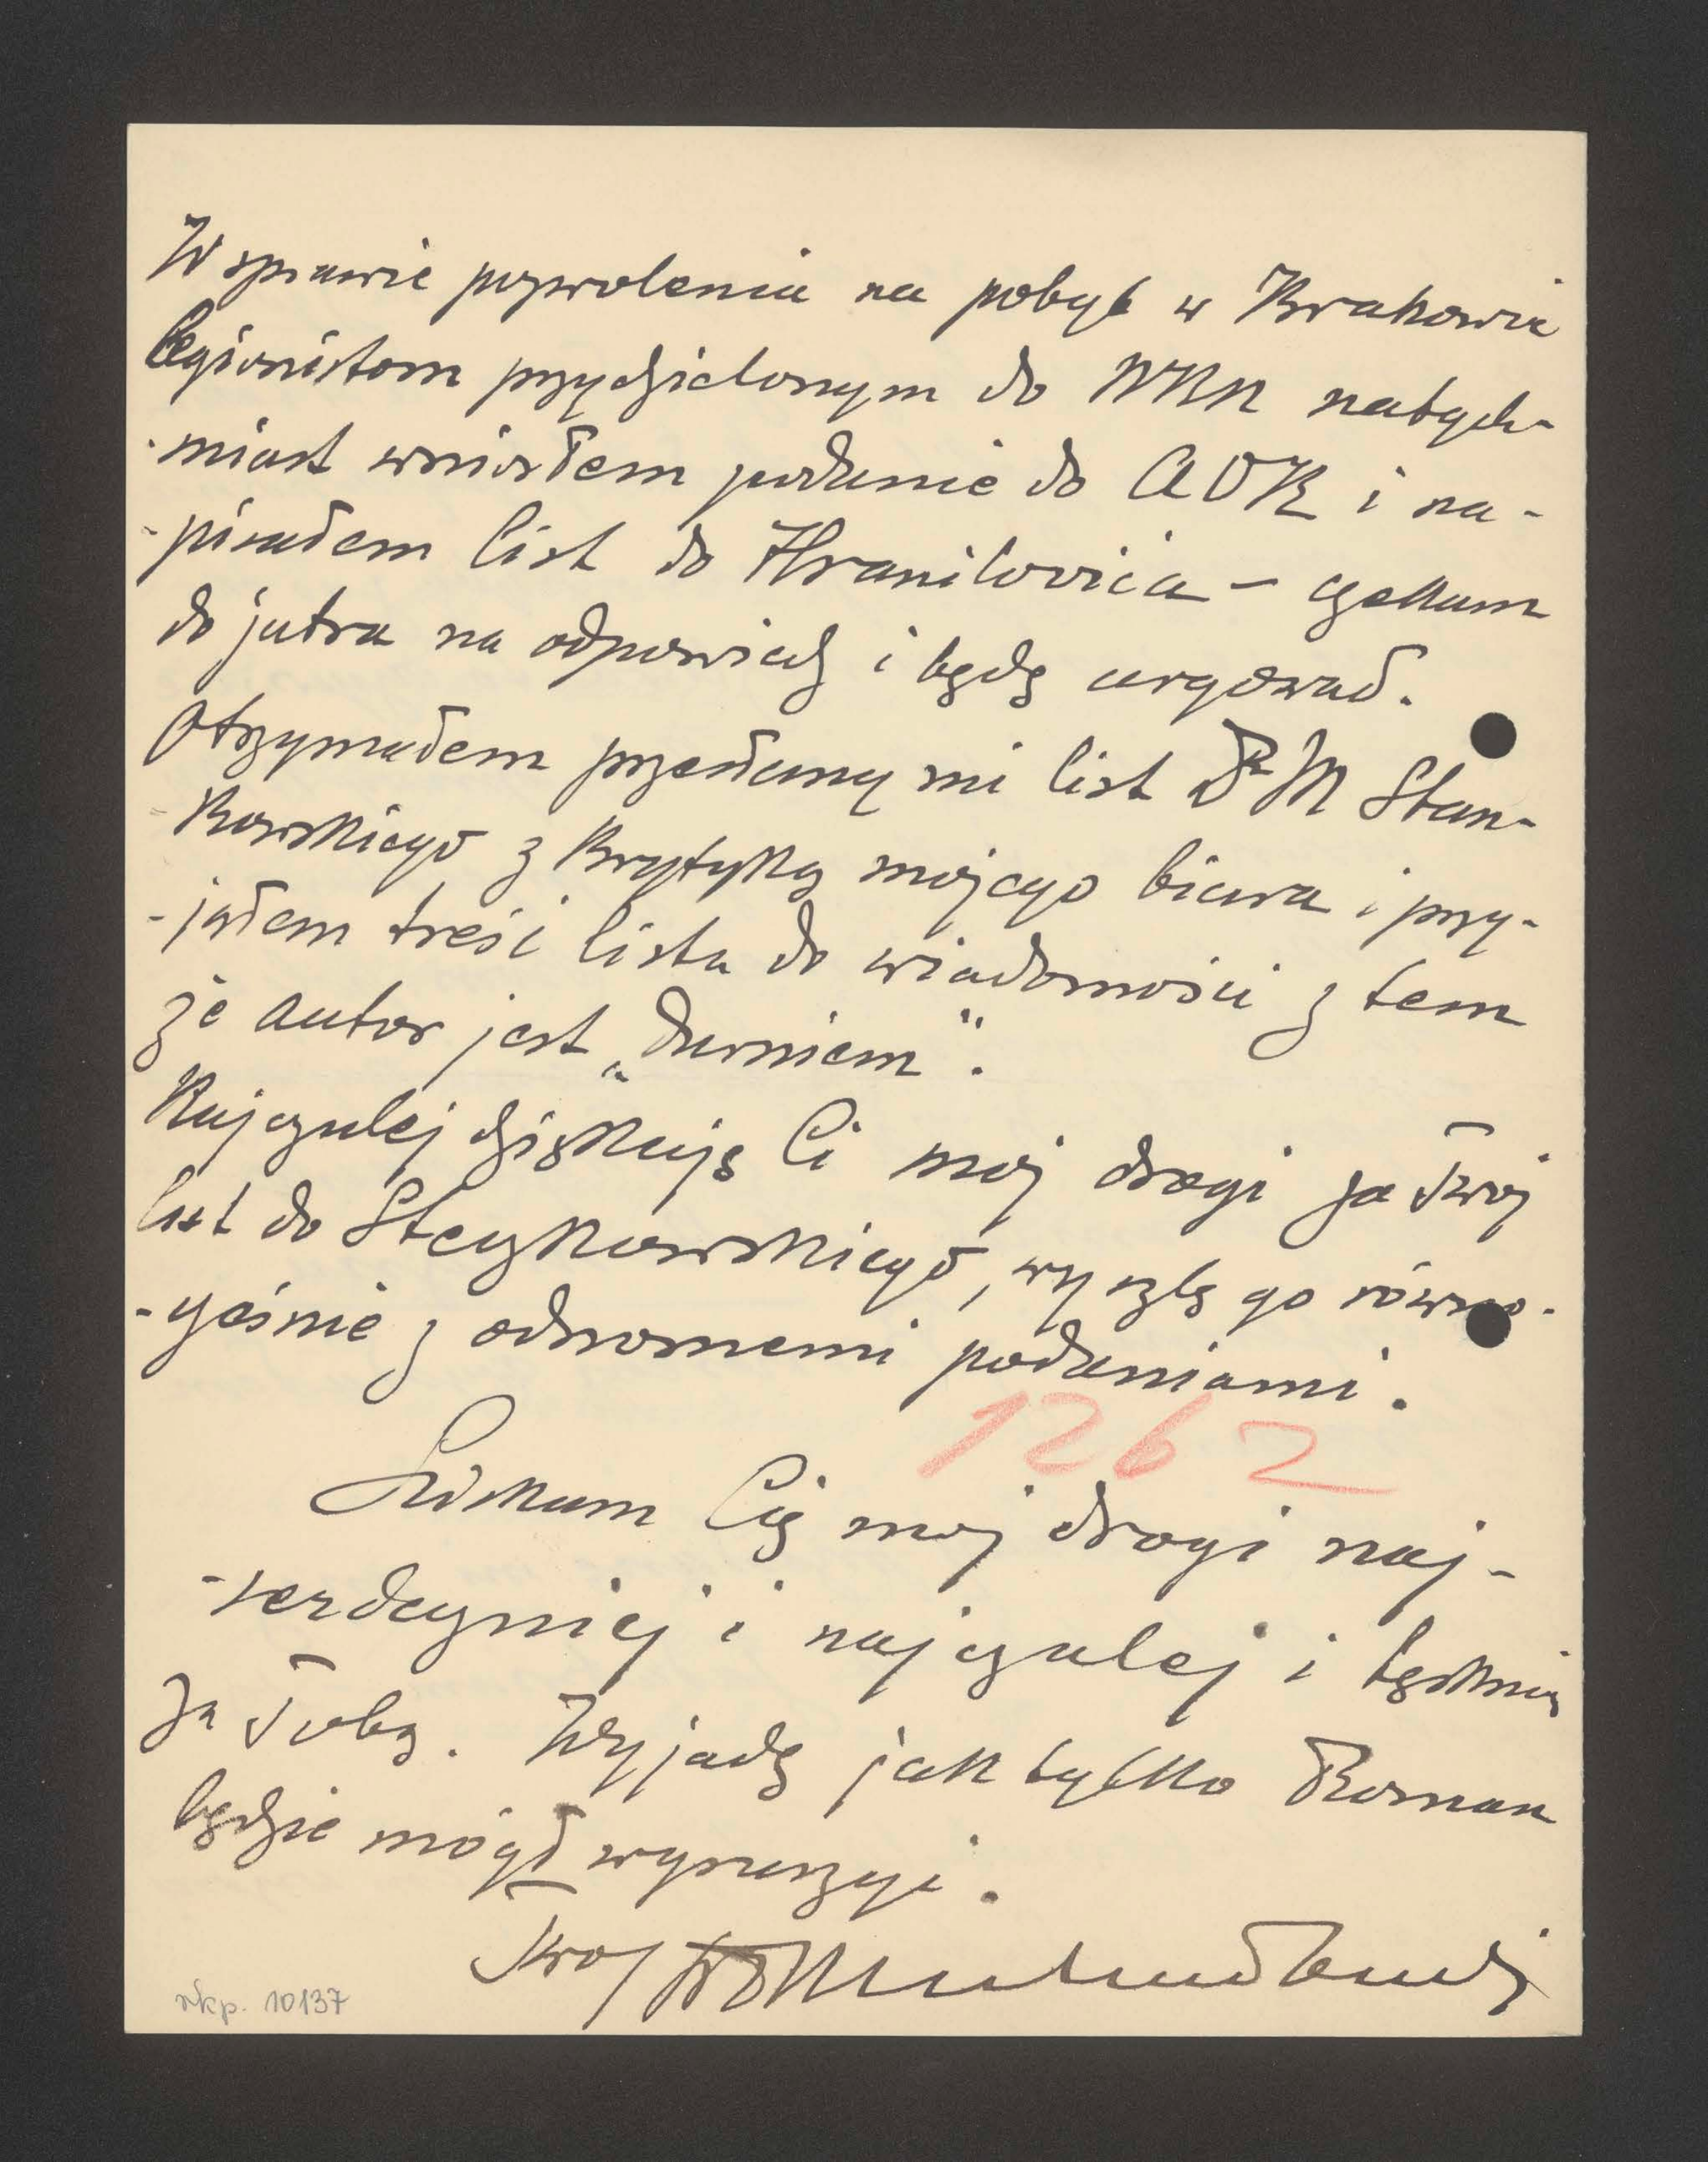 W sprawie pozwolenia na pobyt w Krakowie
legionistom przydzielonym do NKN natych-
-miast wniosłem podanie do AOK i na-
-pisałem list do Hranilovića – czekam
do jutra na odpowiedź i będę urgował.
Otrzymałem przesłany mi list Dr M Stan-
-kowskiego z krytyką mojego biura i przy-
-jąłem treść listu do wiadomości z tem
że autor jest „durniem".
Najczulej dziękuję Ci mój drogi za Twój
list do Steczkowskiego, wyszlę go równo-
-cześnie z odnośnemi podaniami.
1262
Ściskam Cię moj drogi naj-
-serdeczniej i najczulej i tęsknię
za Tobą. Wyjadę jak tylko Roman
będzie mógł wyruszyć.
Twój
rkp. 10137